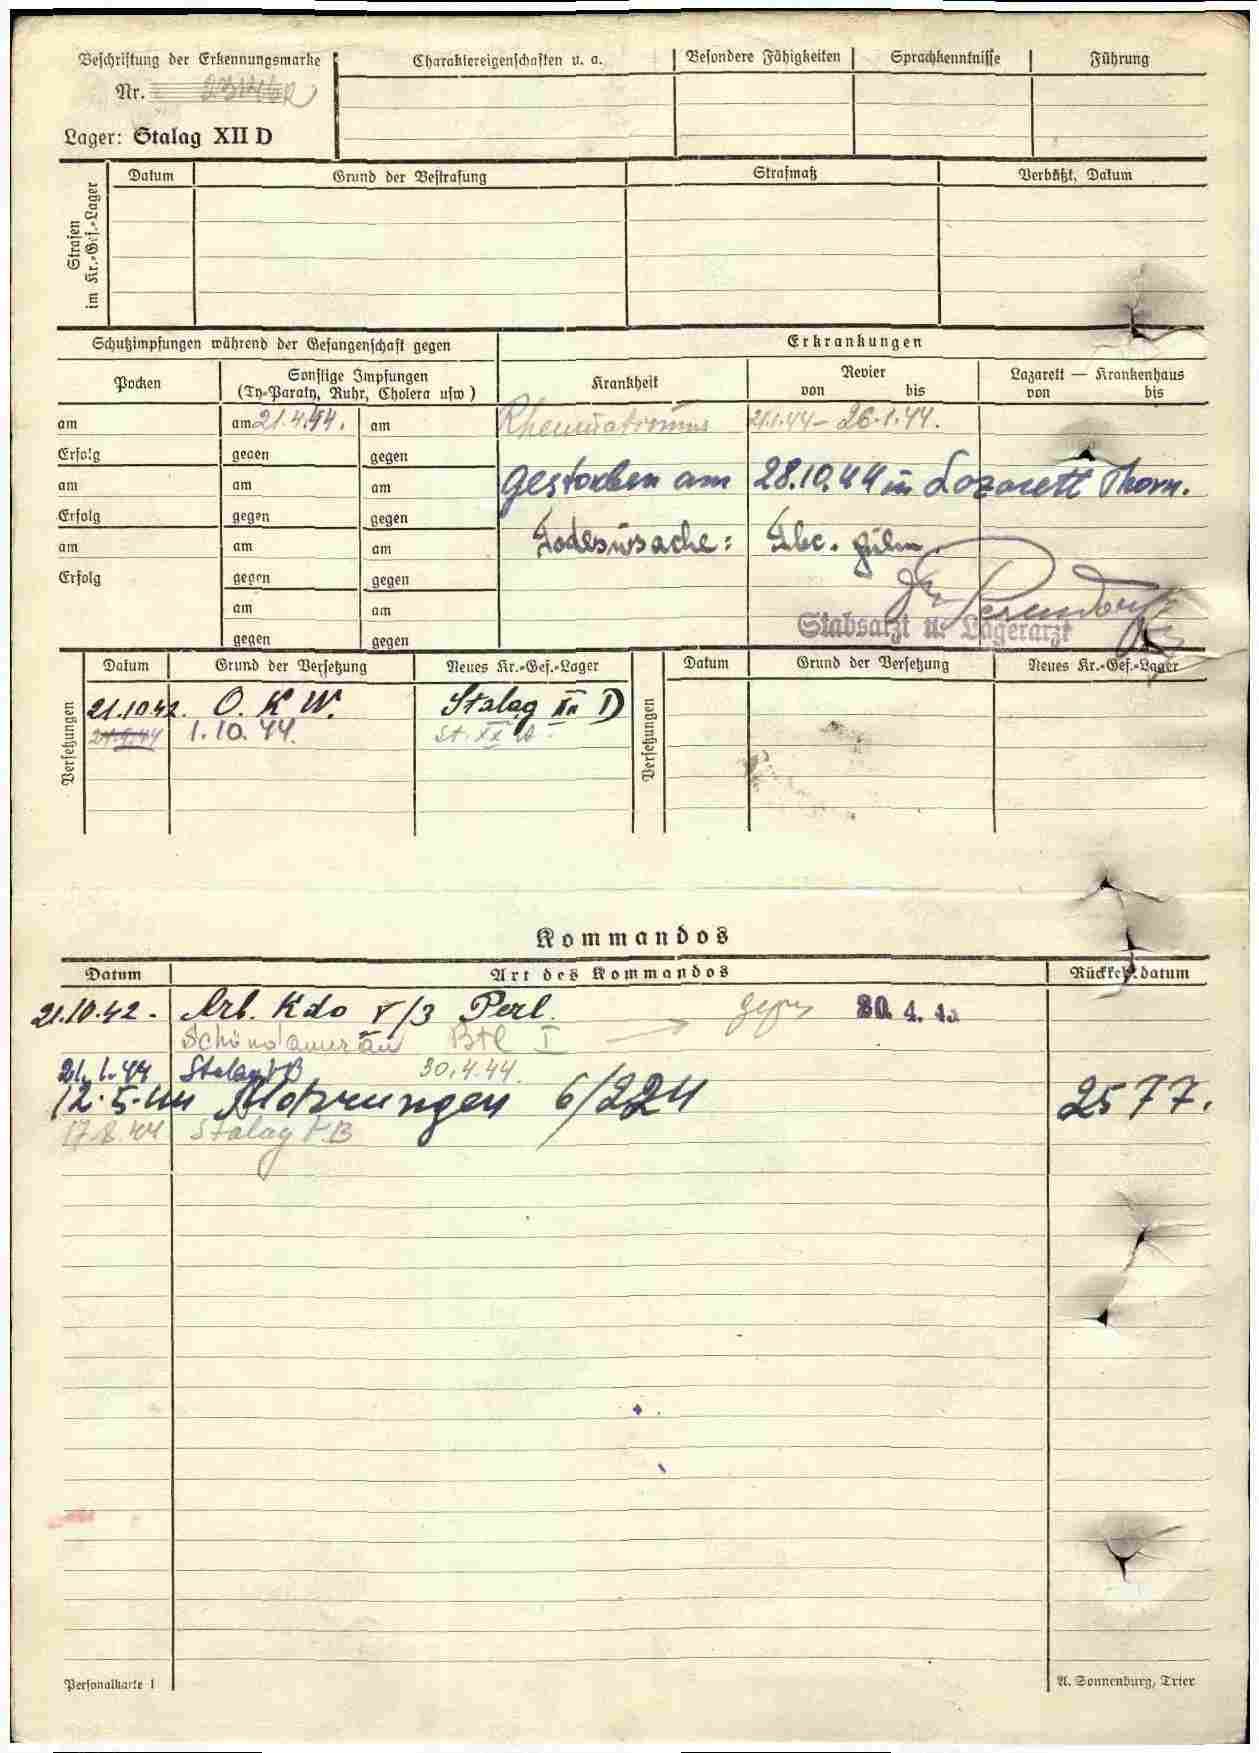 Beschriftung der Erkennungsmarke
Nr.
Lager: Stalag XII D
Charaktereigenschaften u. a.
Besondere Fähigkeiten
Sprachkenntnisse
Führung
Strafen im Kr.-Gef.-Lager
Datum Grund der Bestrafung Strafmaß Verbüßt, Datum
Schutzimpfungen während der Gefangenschaft gegen
Erkrankungen
Pocken
Sonstige Impfungen
(Ty-Paraty, Ruhr, Cholera usw)
Krankheit
Revier
von bis
Lazarett — Krankenhaus
von bis
am am 21.4.44. am Rheumatismus 21.1.44 – 26.1.44.
Erfolg gegen gegen
am am am gestorben am 28.10.44 in Lazarett Thorn.
Erfolg gegen gegen
am am am Todesursache: Tbc. pulm.
Erfolg gegen gegen
am am
Stabsarzt u. Lagerarzt
gegen gegen
Versetzungen
Datum Grund der Versetzung Neues Kr.-Gef.-Lager
21.10.42. O. K. W. Stalag XII D
1.10.44. St. XX
Versetzungen
Datum Grund der Versetzung Neues Kr.-Gef.-Lager
Kommandos
Datum Art des Kommandos Rückkehrdatum
21.10.42. Arb. Kdo V/3 Perl. 30. 4. 43
Btl I
21.1.44 Stalag V B 30.4.44.
12.5.44 6/224 2577.
17.8.44 Stalag V B
Personalkarte I
A. Sonnenburg, Trier